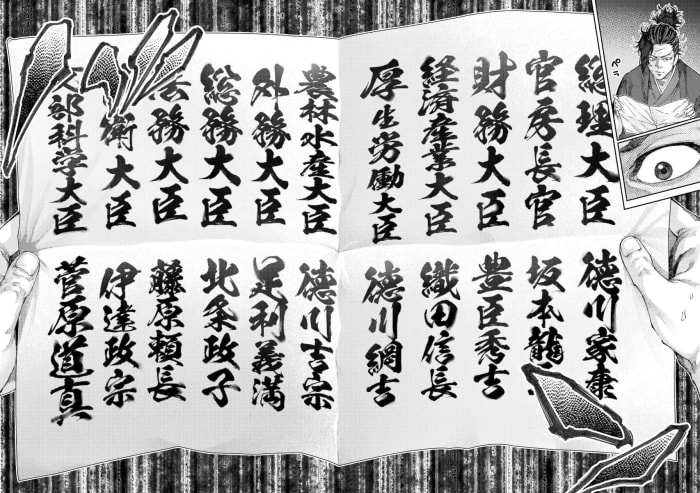 総理大臣 徳川家康
官房長官 坂本龍
財務大臣 豊臣秀吉
経済産業大臣 織田信長
厚生労働大臣 徳川綱吉
農林水産大臣 徳川吉宗
外務大臣 足利義満
総務大臣 北条政子
法務大臣 藤原頼長
衛大臣 伊達政宗
文部科学大臣 菅原道真
ペラ